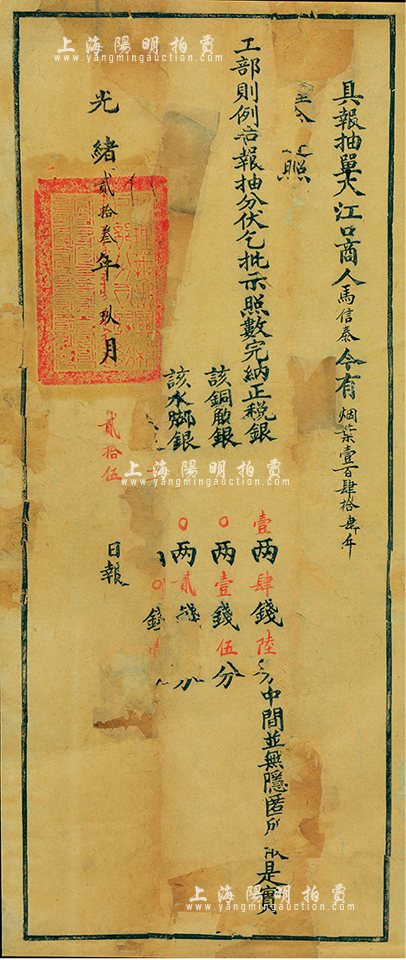 上海陽明拍賣
www.yangmingauction.com
具報抽單大江口商人馬信泰今有烟葉壹百肆拾
照
工部則例岩報抽分伏乞批示照數完納正税銀壹两肆錢陸分中間並無隱匿所是實
該銅觔銀〇两壹錢伍分
該水腳銀〇两貳錢分
〇錢
光緒貳拾叁年玖月貳拾伍日報
上海陽明拍賣
www.yangmingauction.com
上海陽明拍賣
www.yangmingauction.com